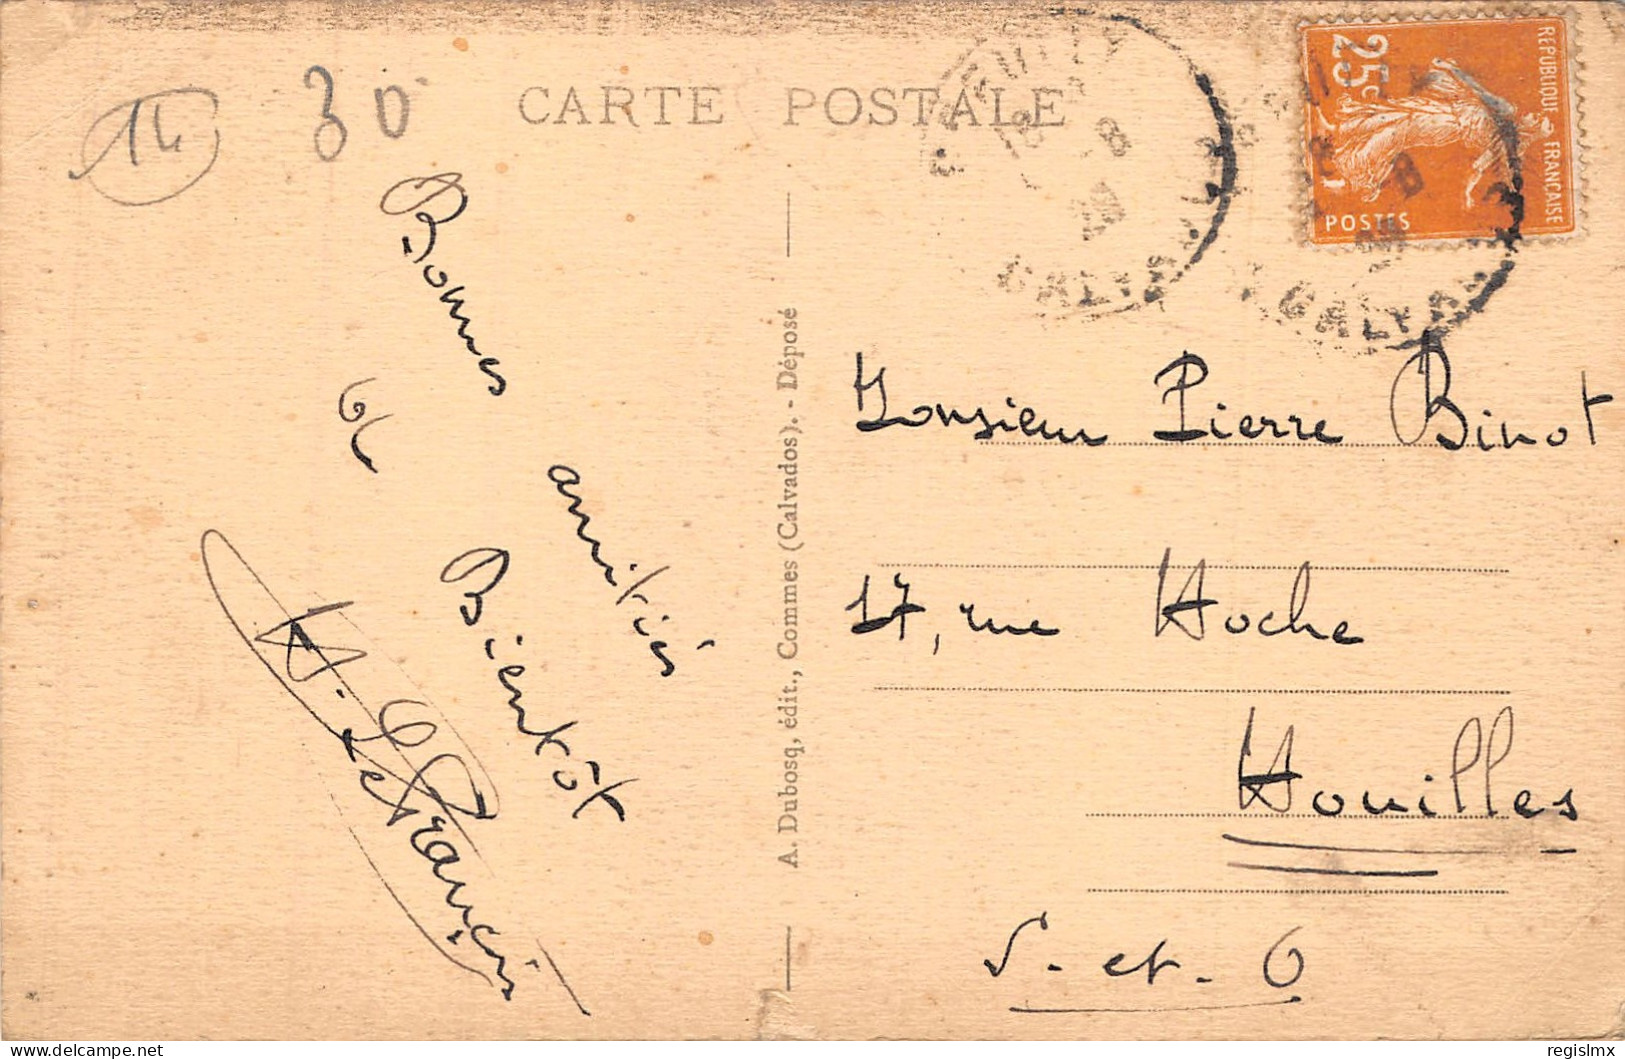 14
30
CARTE POSTALE
REPUBLIQUE FRANÇAISE
25c
POSTES
Bonnes amitiés
et Bientôt
H. Le Francis
A. Dubosq, édit., Commes (Calvados). - Déposé
Monsieur Pierre Binot
17, rue Hoche
Houilles
S.-et-O
regislmx